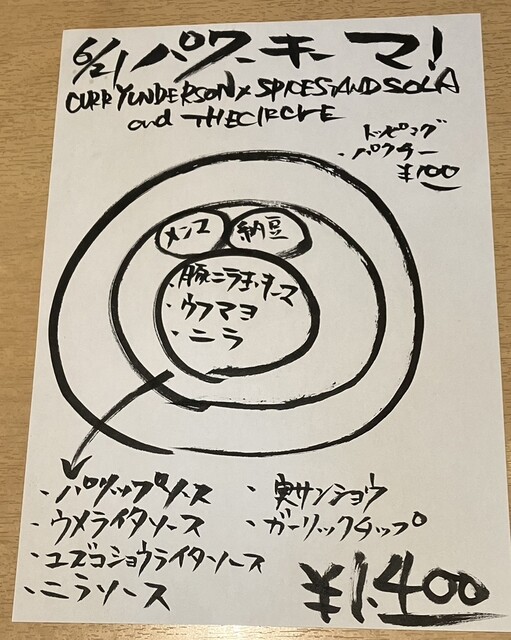 6/21 パワーキーマ!
CURRYUNDERSON × SPICESANDSOLA
and THECIRCLE
トッピング
・パクチー
¥100
メンマ 納豆
・豚ニラキーマ
・ウフマヨ
・ニラ
・パリップソース
・ウメライタソース
・ユズコショウライタソース
・ニラソース
・実サンショウ
・ガーリックチップ
¥1,400